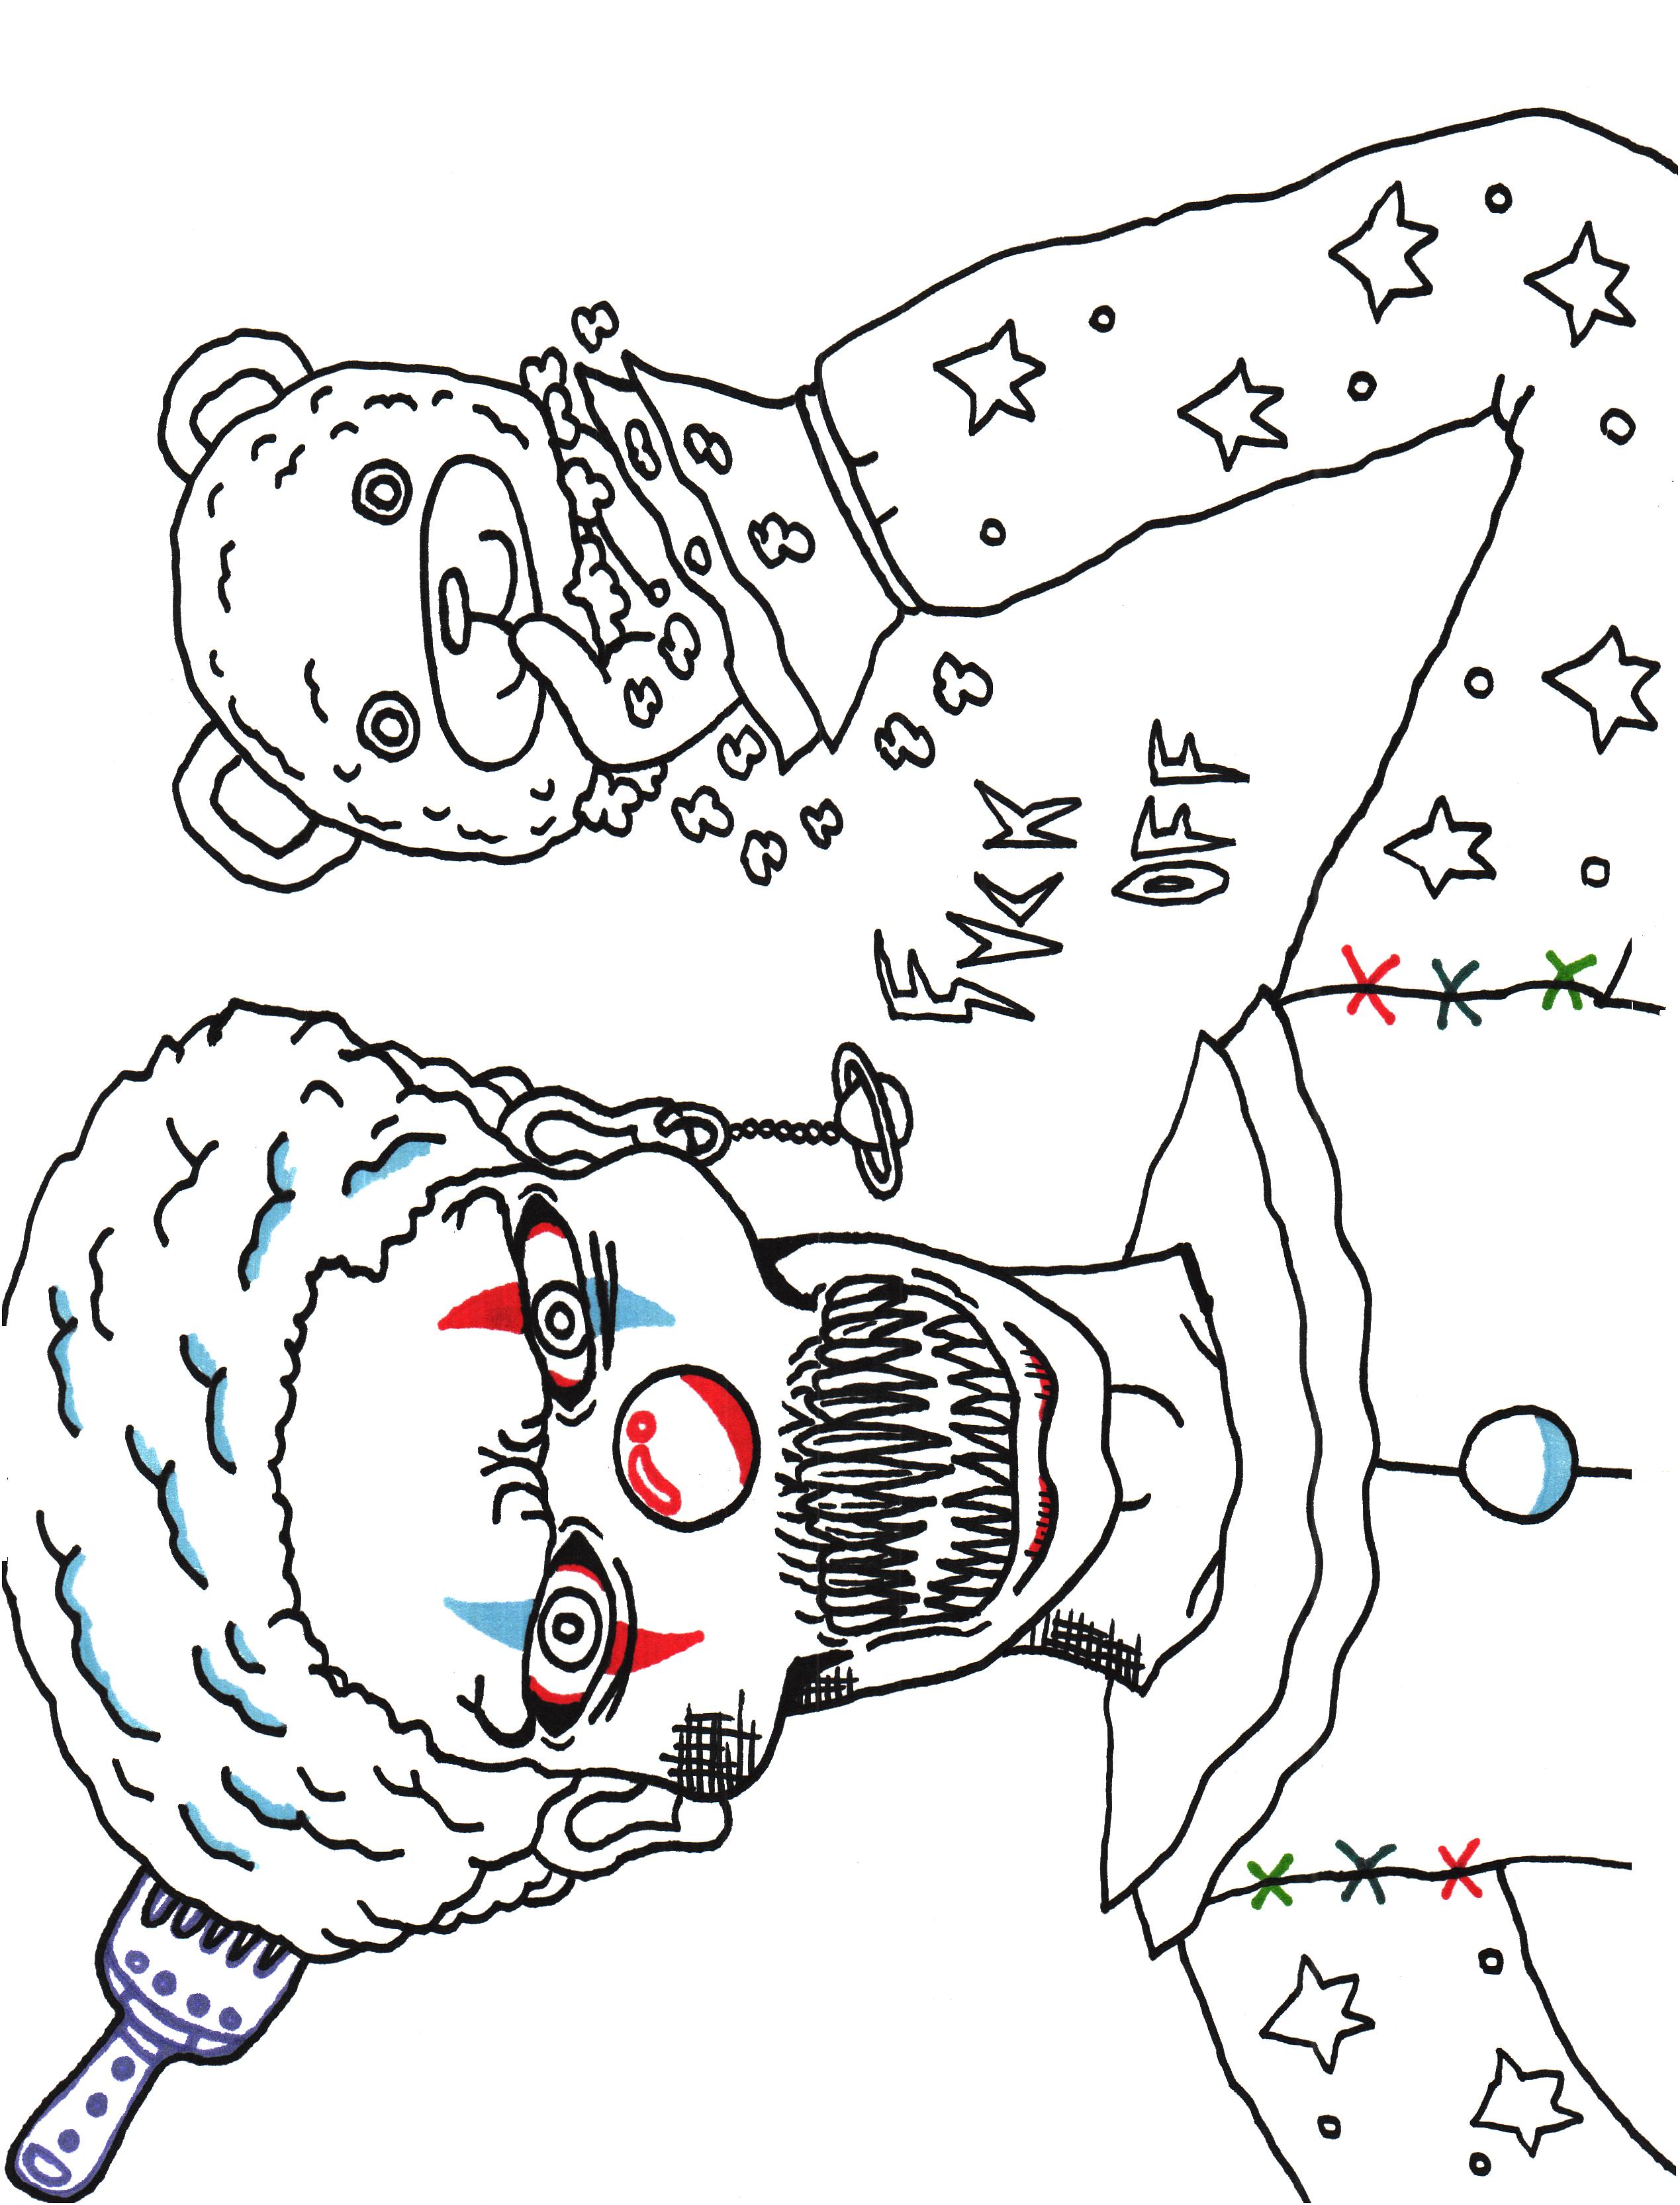 FUCK
OFF